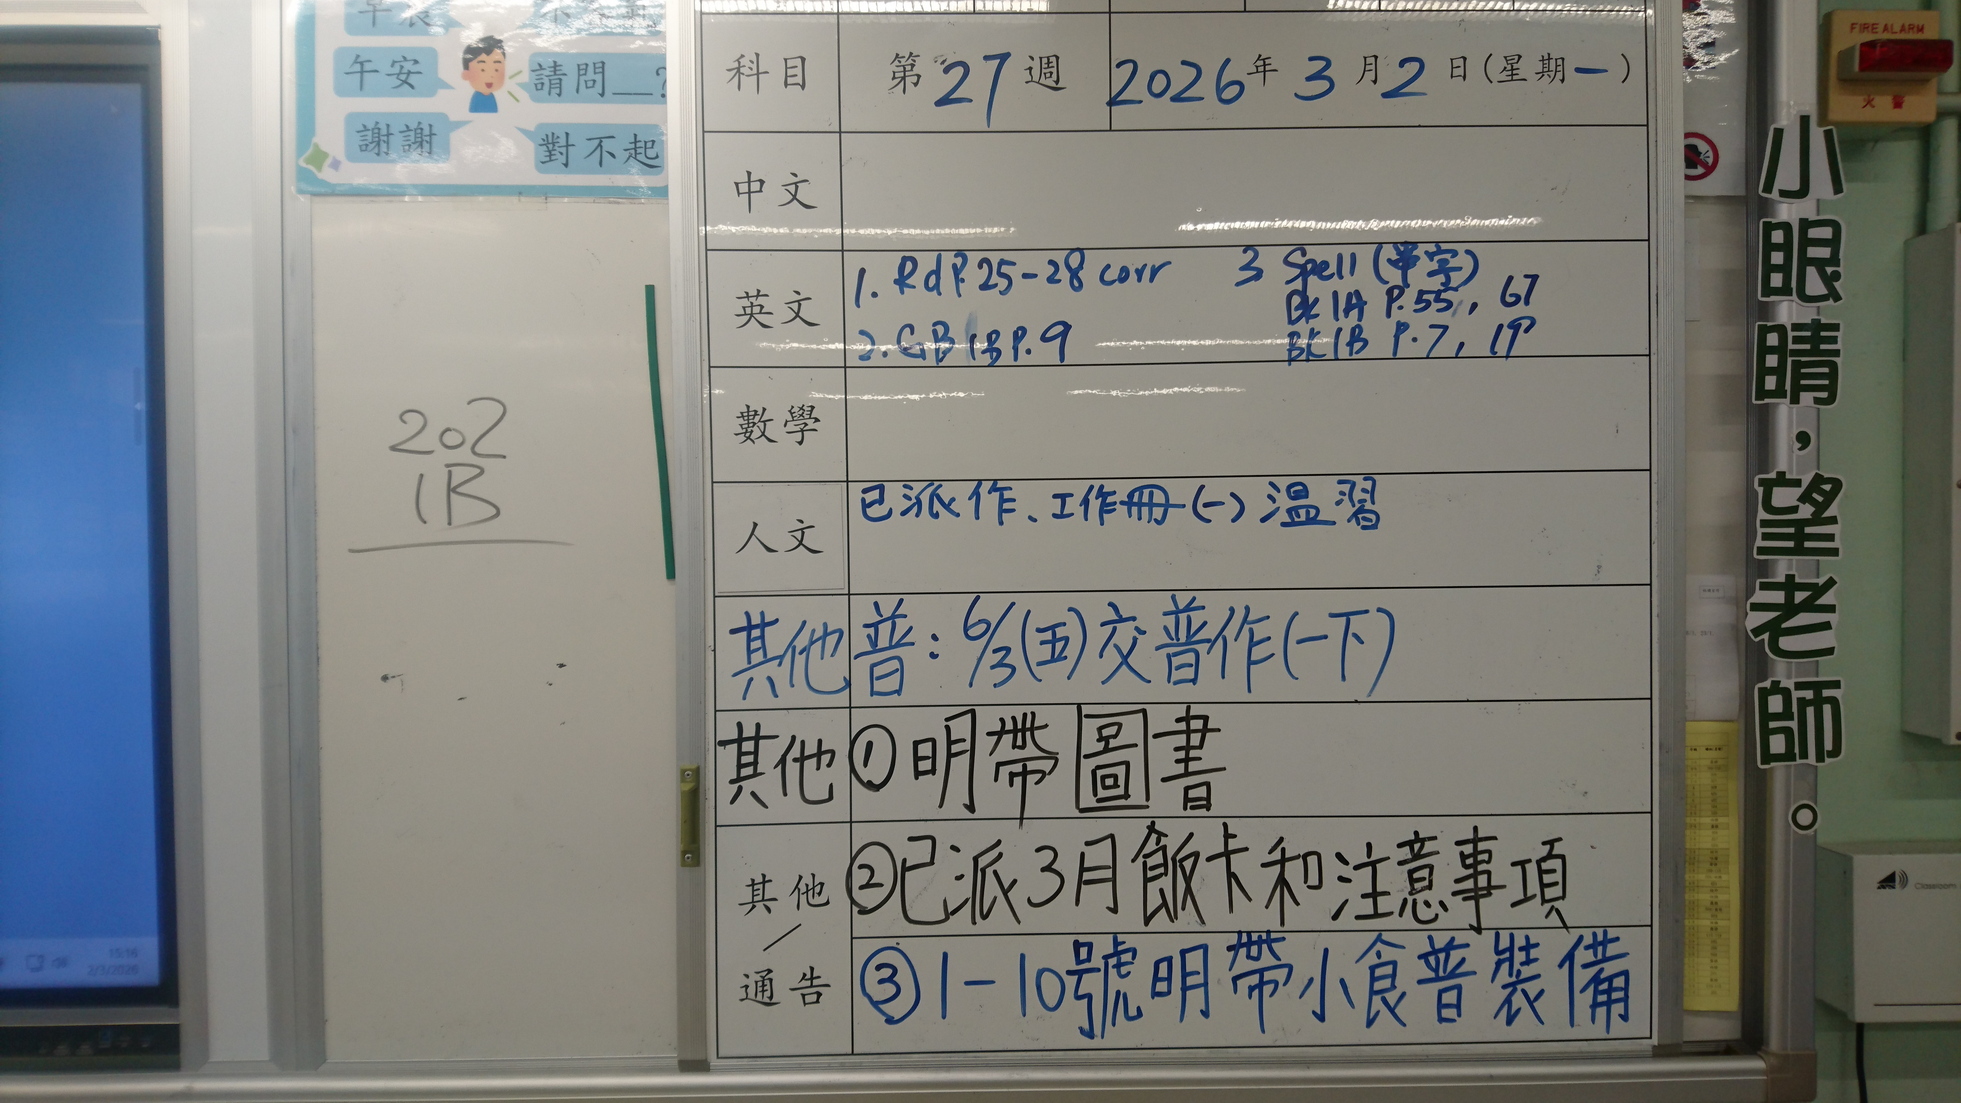 午安
請問__?
謝謝
對不起
202
1B
科目 第27週 2026年3月2日(星期一)
中文
英文
1. Rd P.25-28 corr
2. GB 1B P.9
3 Spell (單字)
BK 1A P.55, 67
BK 1B P.7, 19
數學
人文 已派作、工作冊(一)溫習
其他 普:6/3(五)交普作(一下)
其他 ①明帶圖書
其他/通告
②已派3月飯卡和注意事項
③1-10號明帶小食普裝備
小眼睛,望老師。
FIRE ALARM
火警
Classroom
15:16
2/3/2026